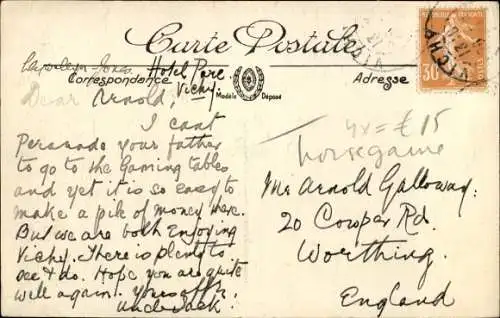 Carte Postale
Hotel Parc
Vichy.
Correspondance
Modèle Déposé
Adresse
Dear Arnold,
I cant
Persuade your father
to go to the Gaming tables
and yet it is so easy to
make a pile of money here.
But we are both Enjoying
Vichy. There is plenty to
see & do. Hope you are quite
well again. Yours affly.
Uncle Jack.
4x = £15
horsegame
Mr Arnold Galloway.
20 Cowper Rd.
Worthing.
England
VICHY
30